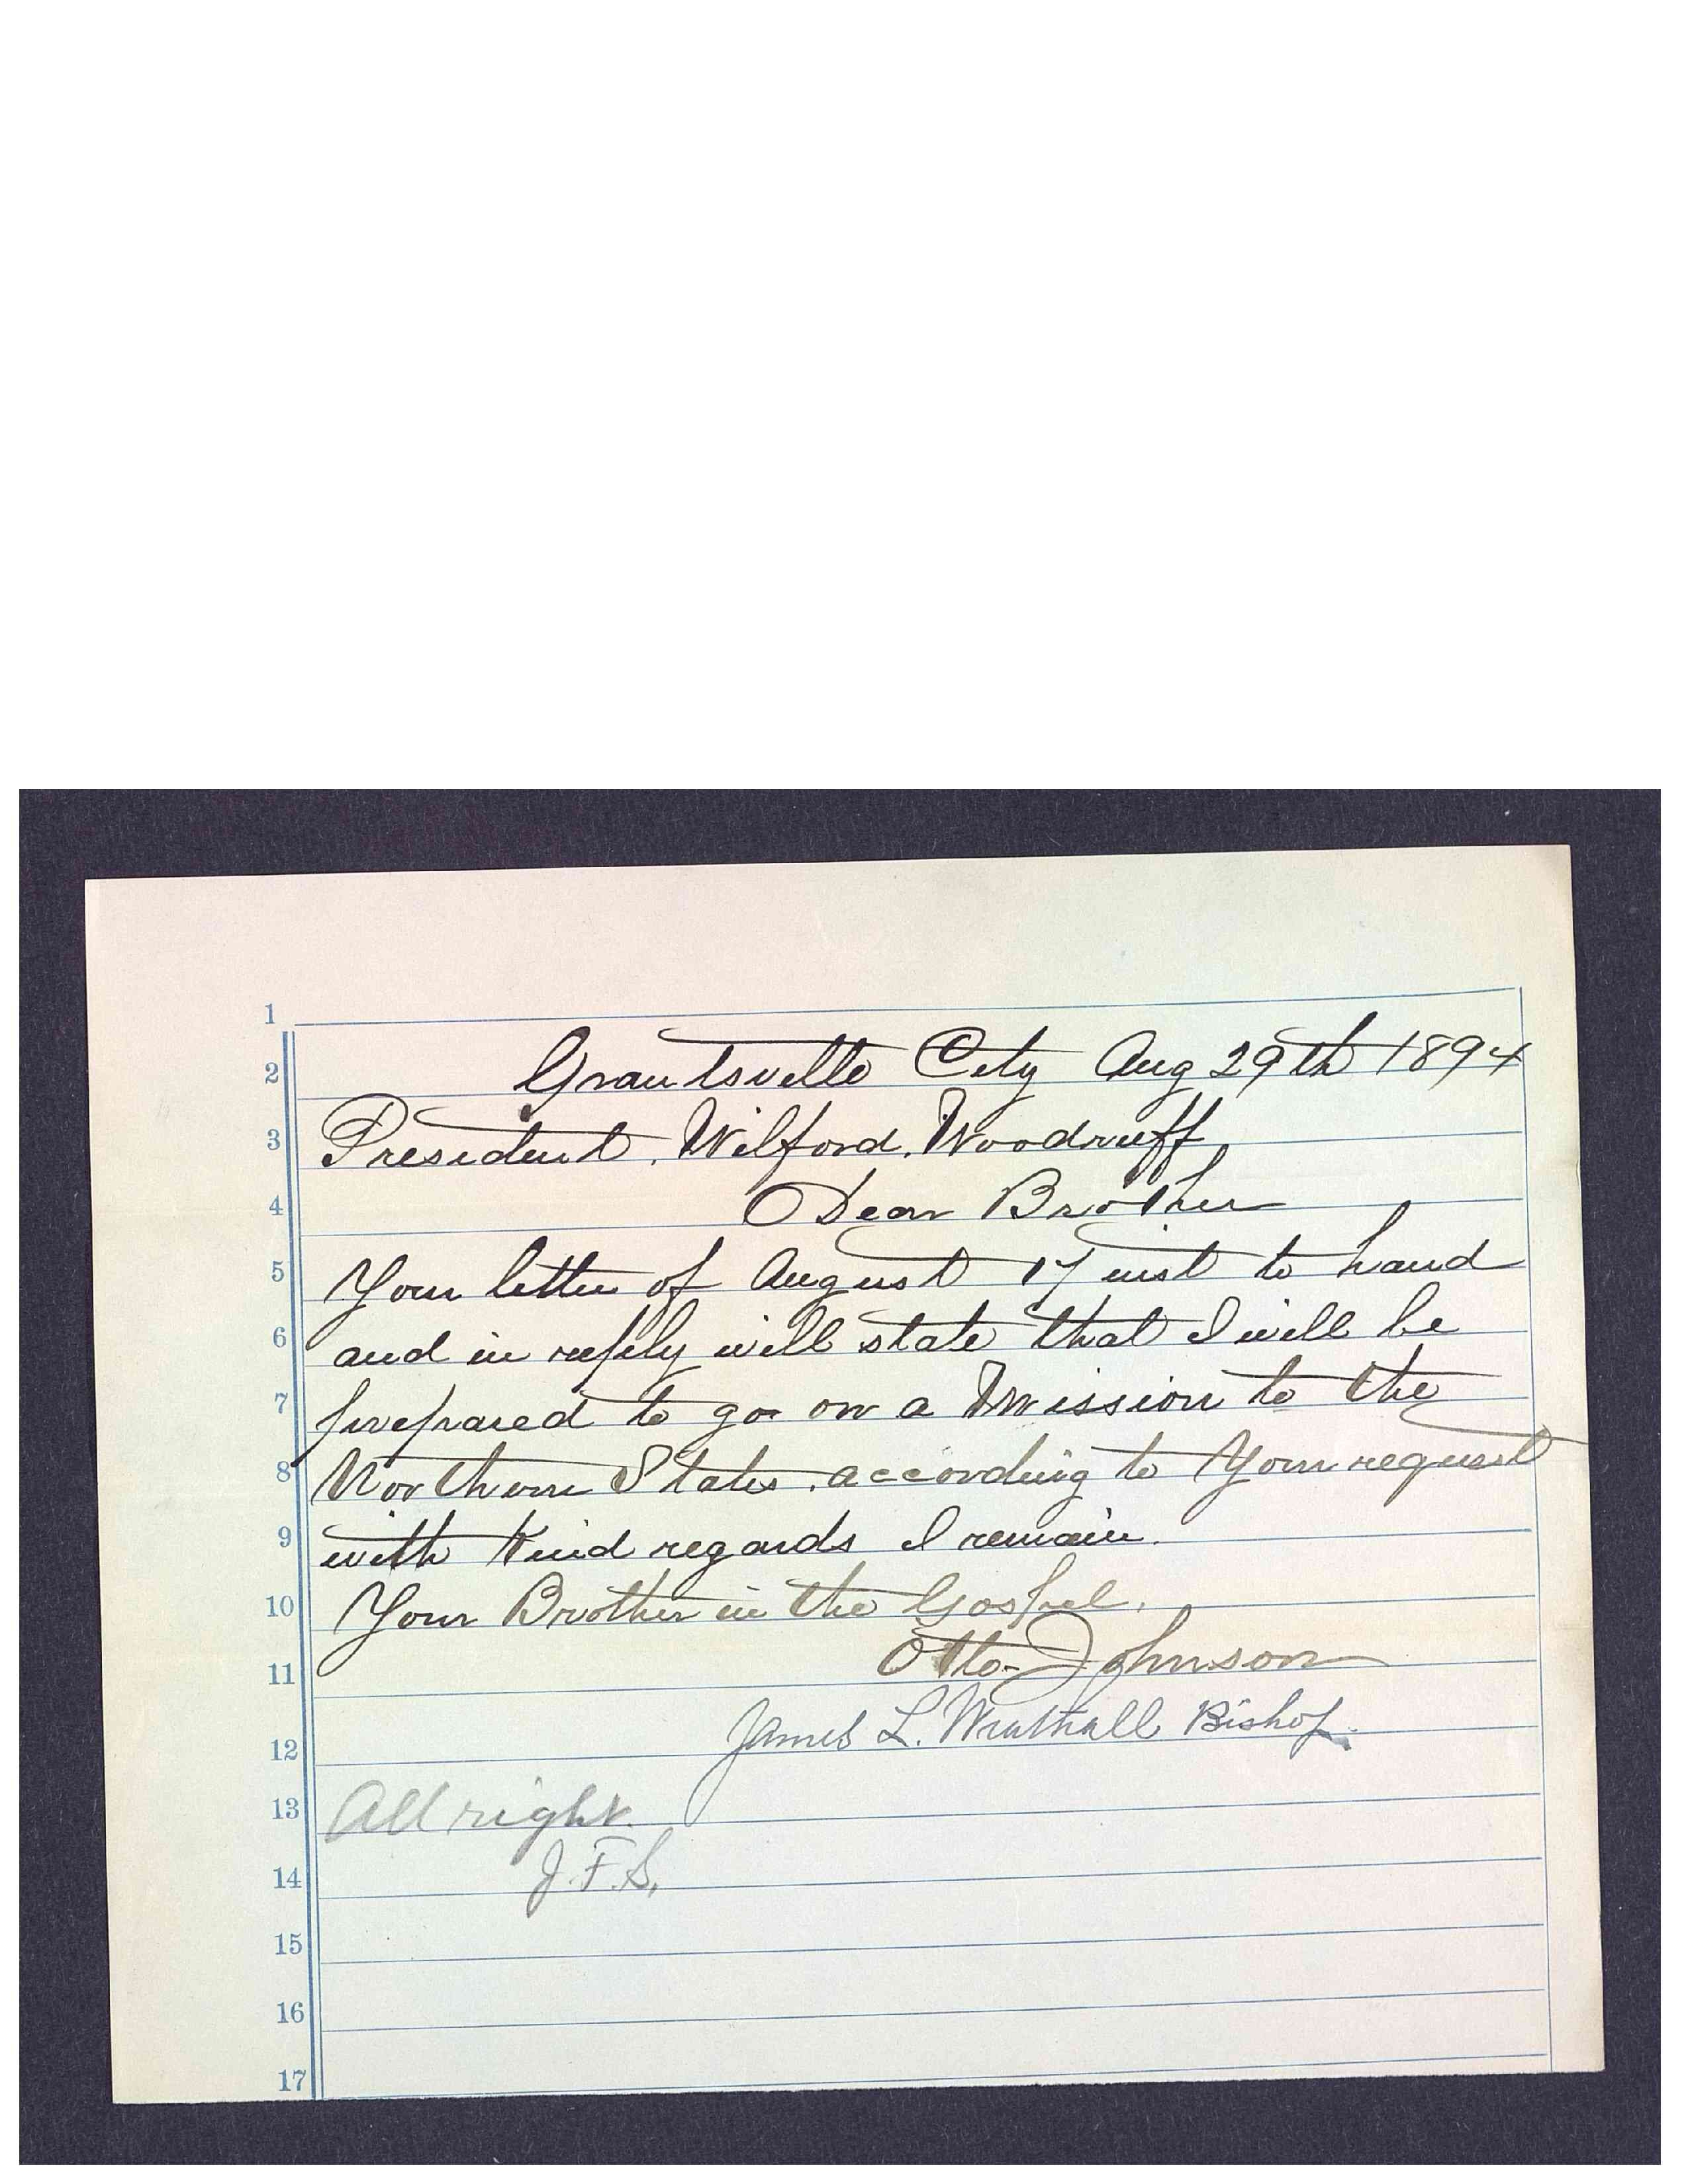 1
2 Grantsville City Aug 29th 1894
3 President. Wilford. Woodruff
4 Dear Brother
5 Your letter of August 17 inst to hand
6 and in reply will state that I will be
7 prepared to go on a Mission to the
8 Northern States. according to Your request
9 with Kind regards I remain.
10 Your Brother in the Gospel.
11 Otto Johnson
12 James L. Wrathall Bishop.
13 All right.
14 J. F. S.
15
16
17